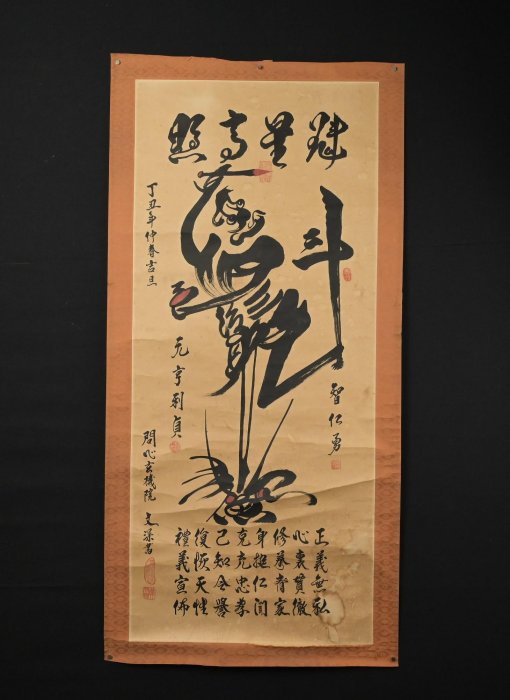 魁星高照
斗
丁丑年仲春吉旦
元亨利貞
智仁勇
正義無私
心裏貫徹
修養齊家
身挺仁
克充忠孝
己知令譽
復恢天性
禮義宣佈
問心玄機院
文 書